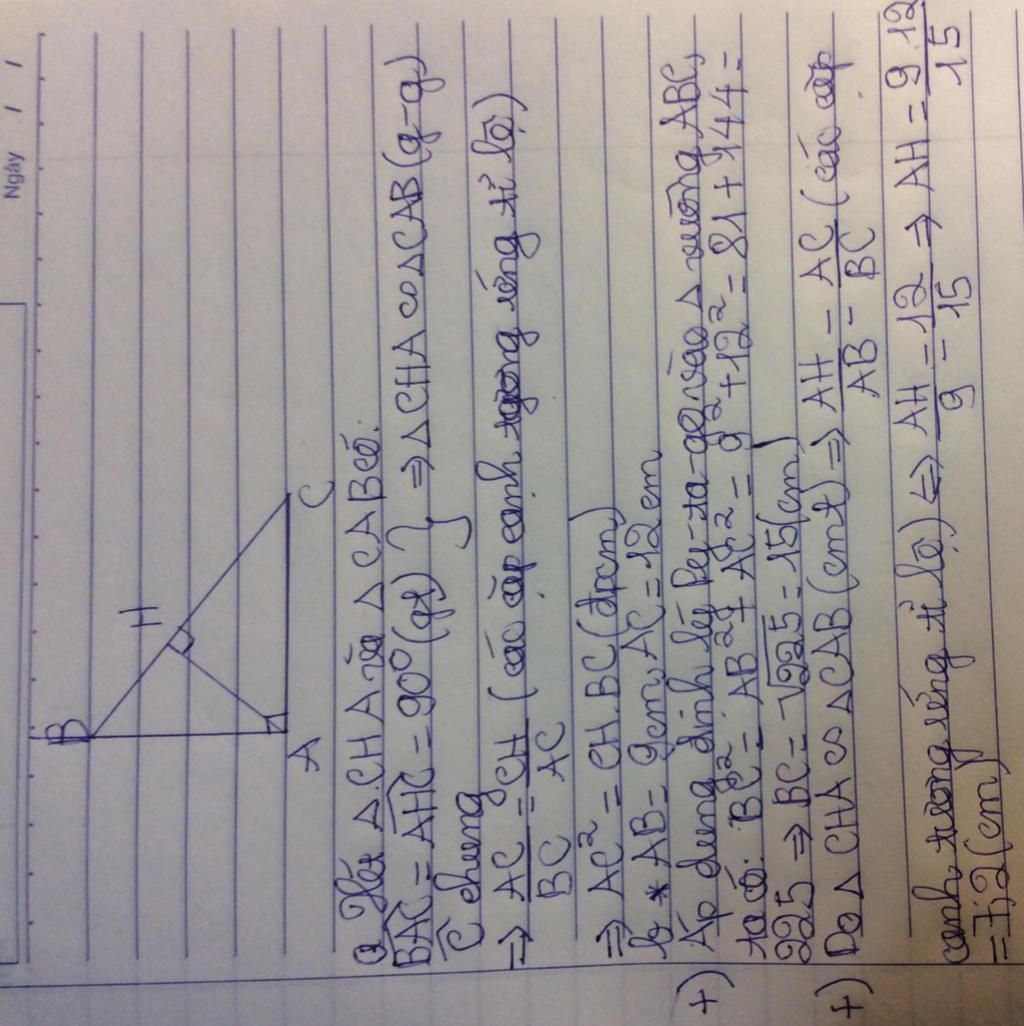 Ngày / /
B
H
A
C
a Xét Δ CHA và Δ CAB có:
BAC = AHC = 90° (gt) } ⇒ Δ CHA ∽ Δ CAB (g-g)
C chung
⇒ AC/BC = CH/AC (các cặp cạnh tương ứng tỉ lệ)
⇒ AC² = CH.BC (đpcm)
b * AB = 9cm, AC = 12cm
+) Áp dụng định lý Py-ta-go vào Δ vuông ABC,
ta có: BC² = AB² + AC² = 9² + 12² = 81 + 144 =
225 ⇒ BC = √225 = 15 (cm)
+) Do Δ CHA ∽ Δ CAB (cmt) ⇒ AH/AB = AC/BC (các cặp
cạnh tương ứng tỉ lệ) ⇔ AH/9 = 12/15 ⇒ AH = 9.12/15
= 7,2 (cm)